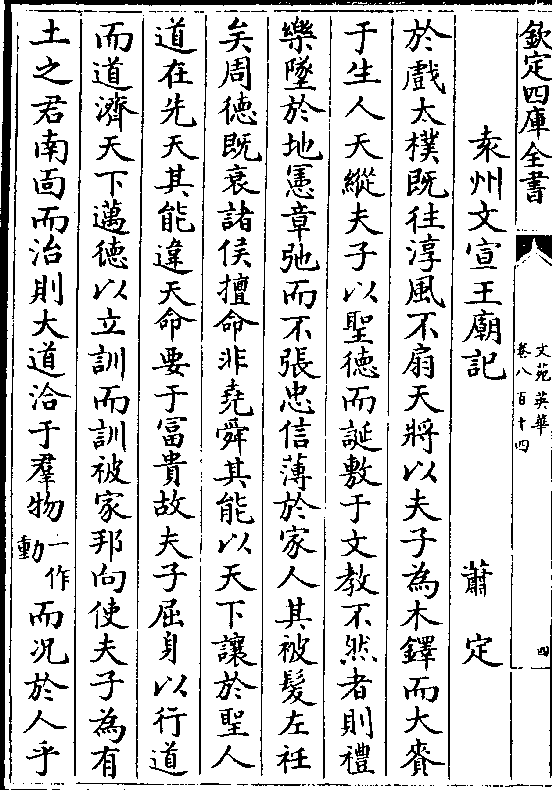 欽定四庫全書
文苑英華
卷八百十四
四
袁州文宣王廟記
蕭定
於戲太樸既往淳風不扇天將以夫子為木鐸而大賚
于生人天縱夫子以聖德而誕敷于文教不然者則禮
樂墜於地憲章弛而不張忠信薄於家人其被髮左衽
矣周德既衰諸侯擅命非堯舜其能以天下讓於聖人
道在先天其能違天命要于冨貴故夫子屈身以行道
而道濟天下邁德以立訓而訓被家邦向使夫子為有
土之君南面而治則大道洽于羣物一作動而况於人乎